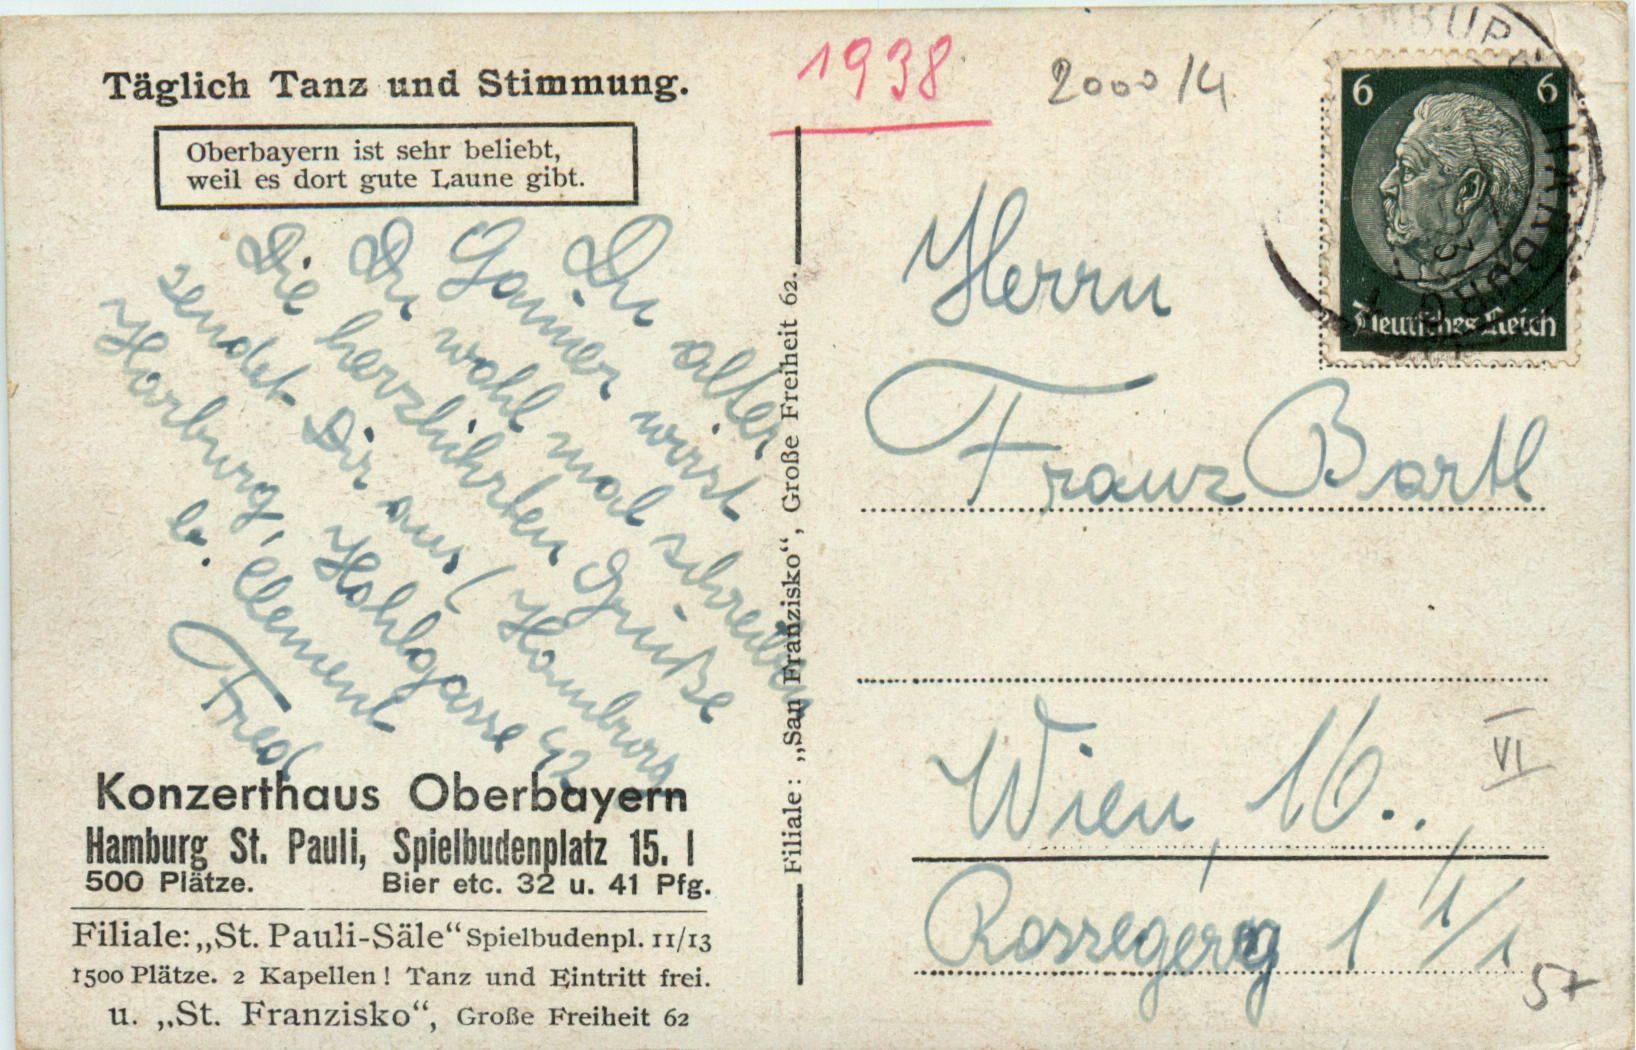 Täglich Tanz und Stimmung.
Oberbayern ist sehr beliebt,
weil es dort gute Laune gibt.
Du alter
Gauner wirst
Du wohl mal schreiben
Die herzlichsten Grüße
sendet Dir aus Hamburg
Harburg, Hohlgasse 42
b. Clement
Fred
Konzerthaus Oberbayern
Hamburg St. Pauli, Spielbudenplatz 15. I
500 Plätze. Bier etc. 32 u. 41 Pfg.
Filiale: „St. Pauli-Säle“ Spielbudenpl. 11/13
1500 Plätze. 2 Kapellen! Tanz und Eintritt frei.
u. „St. Franzisko“, Große Freiheit 62
Filiale: „San Franzisko“, Große Freiheit 62.
1938
2000/4
6 6
Deutsches Reich
HAMBURG
Herrn
Franz Bartl
Wien, 16.,
VI
1 1/1
57